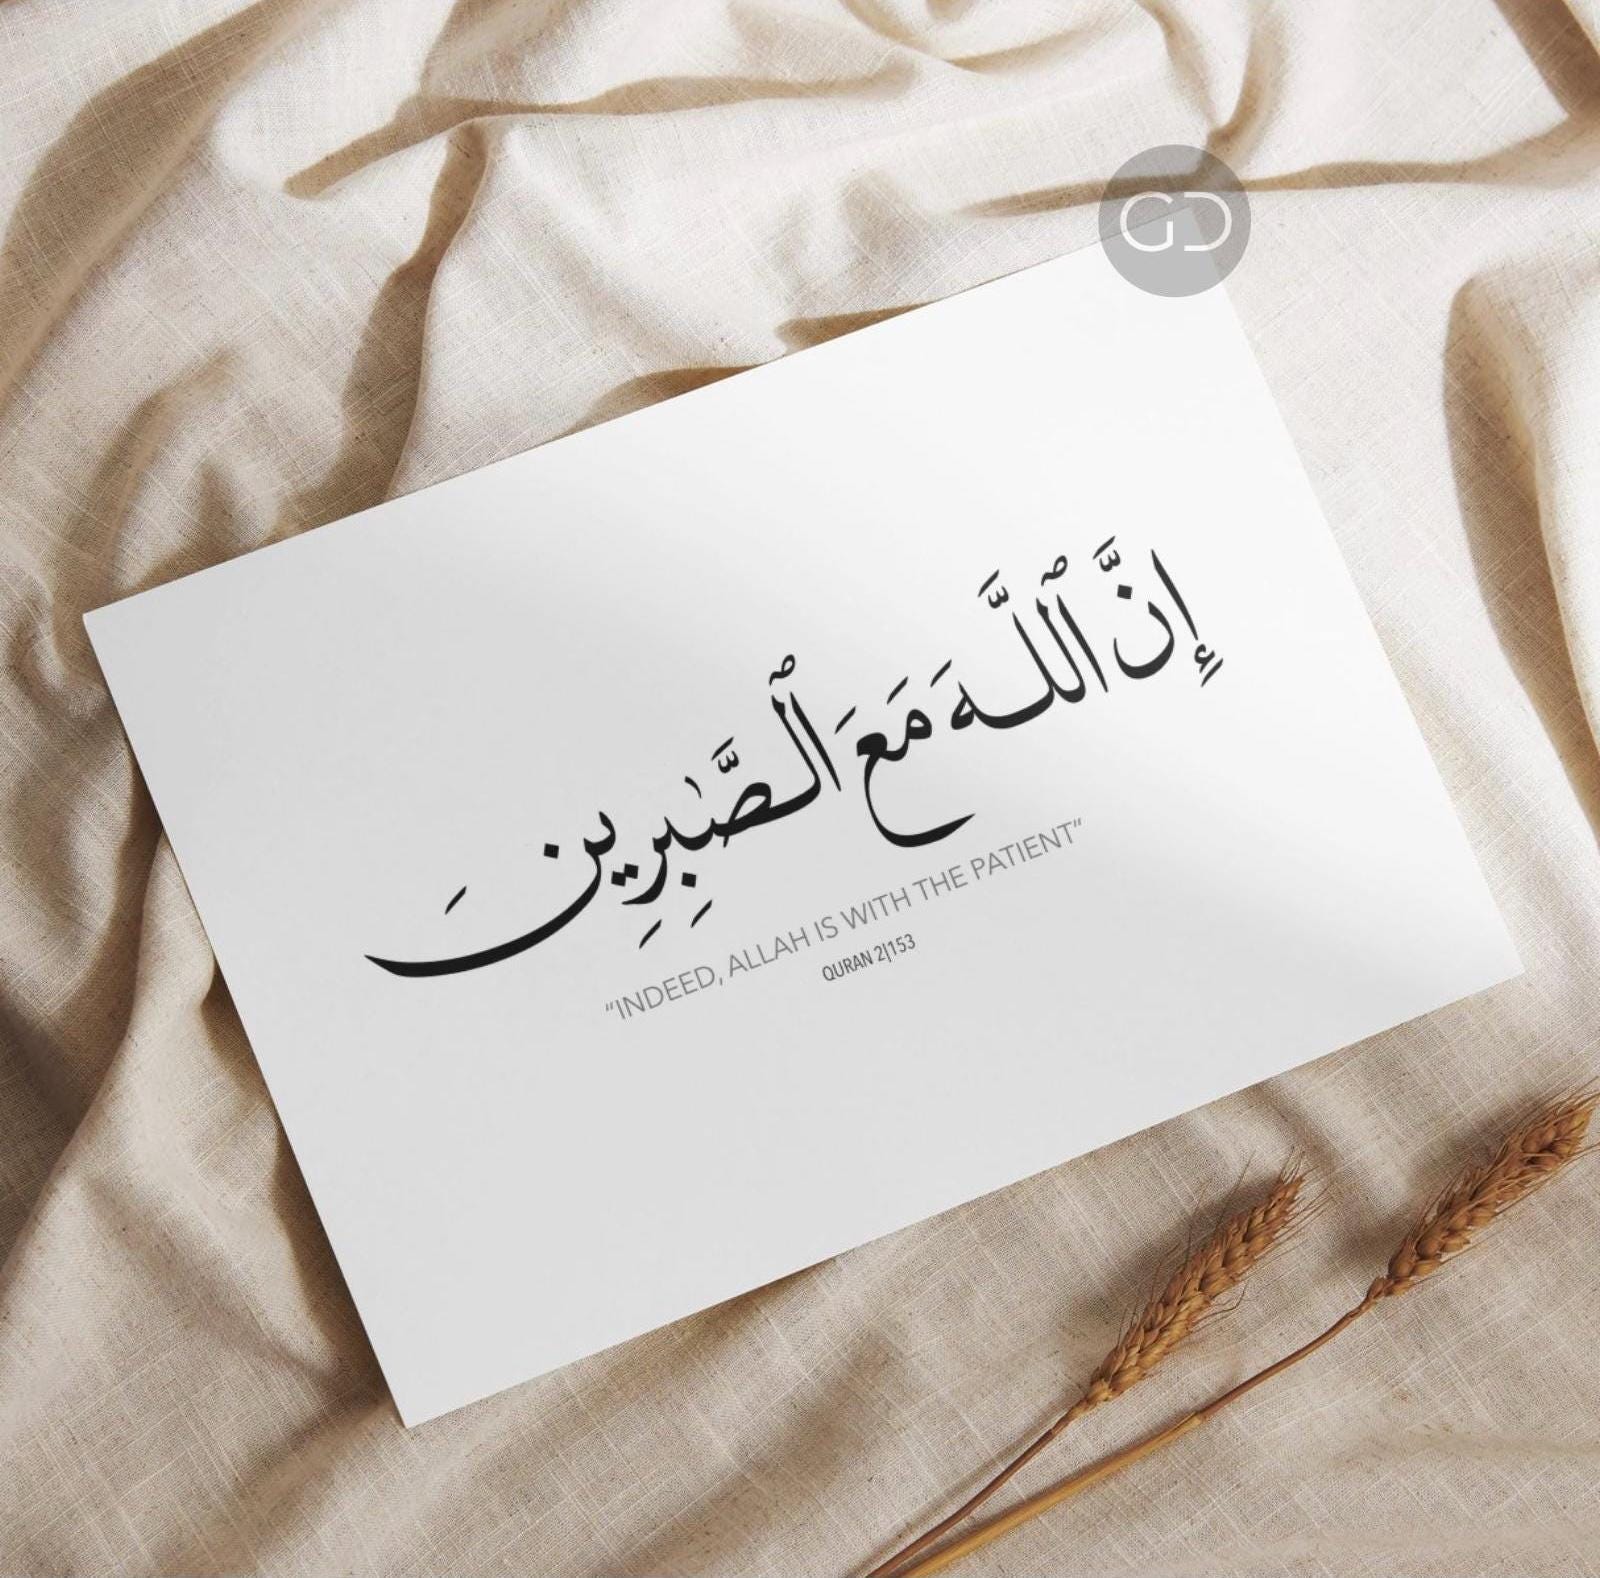 GD
إِنَّ ٱللَّهَ مَعَ ٱلصَّـٰبِرِينَ
“INDEED, ALLAH IS WITH THE PATIENT”
QURAN 2|153